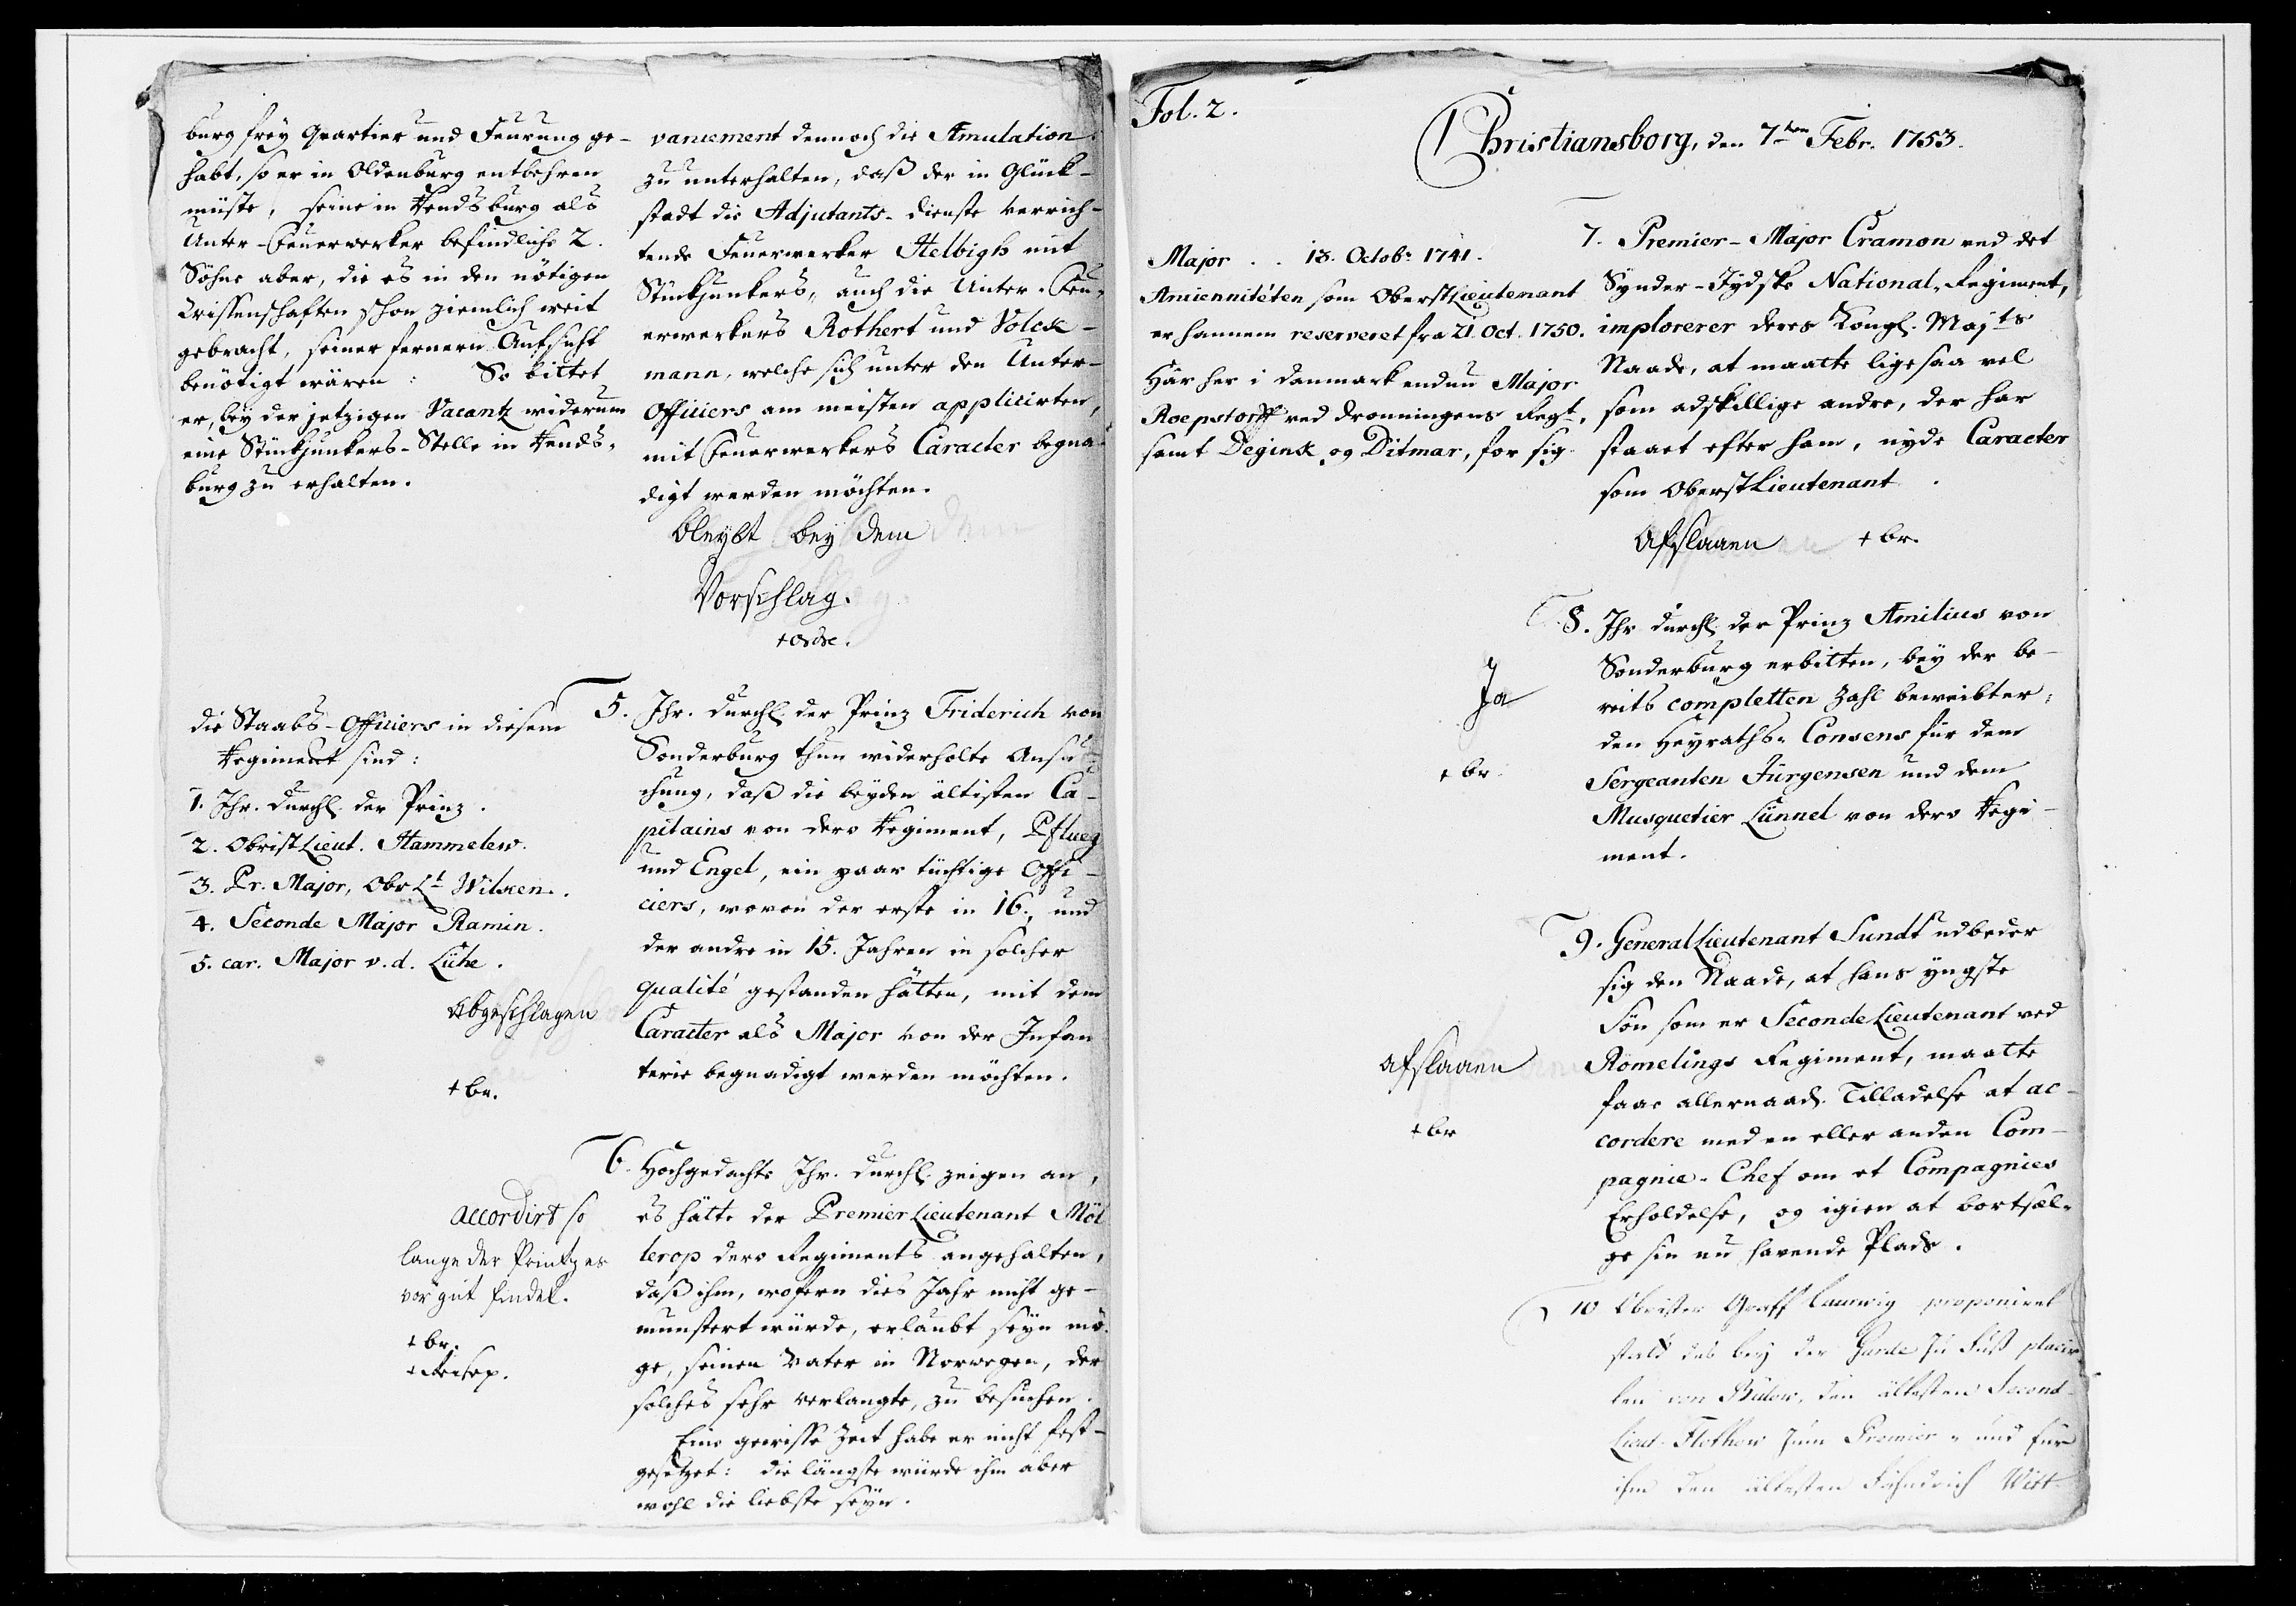 burg frey Quartier und Feurung ge-
habt, so er in Oldenburg entbehren
müste, seine in Rendsburg als
Unter-Feuerwerker befindliche 2.
Söhne aber, die es in den nötigen
Wissenschaften schon ziemlich weit
gebracht, seiner fernern Aufsicht
benötigt wären: So bittet
er, bey der jetzigen Vacantz widerum
eine Stückjunkers-Stelle in Rends-
burg zu erhalten.
vancement dennoch die Æmulation
zu unterhalten, daß der in Glück-
stadt die Adjutants-dienste verrich-
tende Feuerwerker Helbigh mit
Stückjunkers, auch die Unter-Feu-
erwerkers Rothert und Volck-
mann, welche sich unter den Unter-
Officiers am meisten applicirten,
mit Feuerwerkers Caracter begna-
digt werden möchten.
bleybt bey dem
Vorschlag.
+ ordre.
die Staabs-Officiers in diesem
Regiment sind:
1. Ihr. Durchl. der Prinz.
2. ObristLieut. Hammelew.
3. Pr. Major, Obr Lt Wilcken.
4. Seconde Major Ramin.
5. car. Major v. d. Lühe.
Abgeschlagen
+ br.
5. Ihr. Durchl. der Prinz Friderich von
Sonderburg thun widerholte Ansu-
chung, daß die beyden ältisten Ca-
pitains von dero Regiment, Pflueg
und Engel, ein paar tüchtige Offi-
ciers, wovon der erste in 16., und
der andre in 15. Jahren in solcher
qualité gestanden hätten, mit dem
Caracter als Major von der Infan
terie begnadigt werden möchten.
accordirt so
lange der Printz es
vor gut findet.
+ br.
6. Hochgedachte Ihr. Durchl. zeigen an,
es hätte der PremierLieutenant Möl
lerop dero Regiments angehalten,
daß ihm, wofern dies Jahr nicht ge-
munstert würde, erlaubt seyn mö-
ge, seinen Vater in Norwegen, der
solches sehr verlangte, zu besuchen.
Eine gewisse Zeit habe er nicht fest-
gesetzet: die längste würde ihm aber
wohl die liebste seyn.
Fol. 2.
Christiansborg, den 7ten Febr. 1753.
Major . . 13. Octobr 1741.
Anciennitéten som OberstLieutenant
er hannem reserveret fra 21. Oct. 1750.
Har her i Danmark endnu Major
Roepstorff ved Dronningens Regt,
samt Degink og Ditmar, for sig
7. Premier-Major Cramon ved det
Synder-Jydske National-Regiment,
implorerer deres Kongl. Majts
Naade, at maatte ligesaa vel
som adskillige andre, der har
staaet efter ham, nyde Caracter
som OberstLieutenant.
Afslaaen + br.
Ja
+ br.
8. Ihr Durchl. der Prinz Æmilius von
Sonderburg erbitten, bey der be-
reits completten Zahl beweibter,
den Heyraths-Consens für dem
Sergeanten Jürgensen und dem
Musquetier Lünnel von dero Regi-
ment.
afslaaen
+ br
9. GeneralLieutenant Sundt udbeder
sig den Naade, at hans yngste
Søn som er SecondeLieutenant ved
Römelings Regiment, maatte
faae allernaad. Tilladelse at ac-
cordere med en eller anden Com-
pagnie-Chef om et Compagnies
Erholdelse, og igien at bortsæl-
ge sin nu havende Plads.
10 Obrister Graff Laurwig proponiret
statt des bey der Garde zu Fuß placir
ten von Bülow, den ältesten Second-
Lieut. Flothow zum Premier- und für
ihm den ältesten Fähndrich Witt-